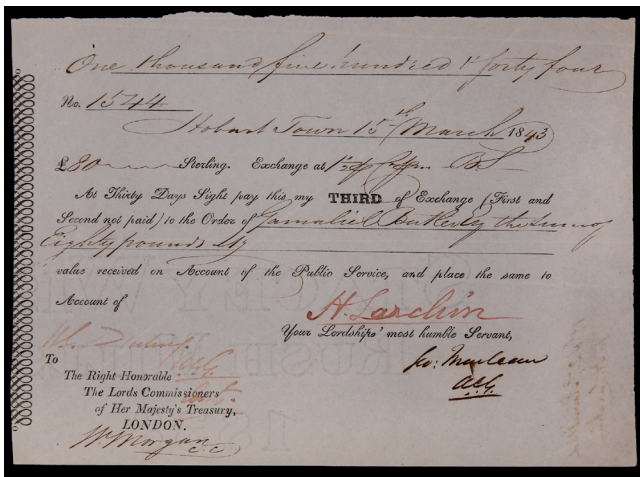 One thousand five hundred & forty four
No. 1544
Hobart Town 15th March 1843
£80 Sterling. Exchange at
At Thirty Days Sight pay this my THIRD of Exchange (First and
Second not paid) to the Order of Gamaliel Butler Esq the Sum of
Eighty pounds Stg
value received on Account of the Public Service, and place the same to
Account of
Your Lordships' most humble Servant,
To
The Right Honorable
The Lords Commissioners
of Her Majesty's Treasury,
LONDON.
Wm Morgan